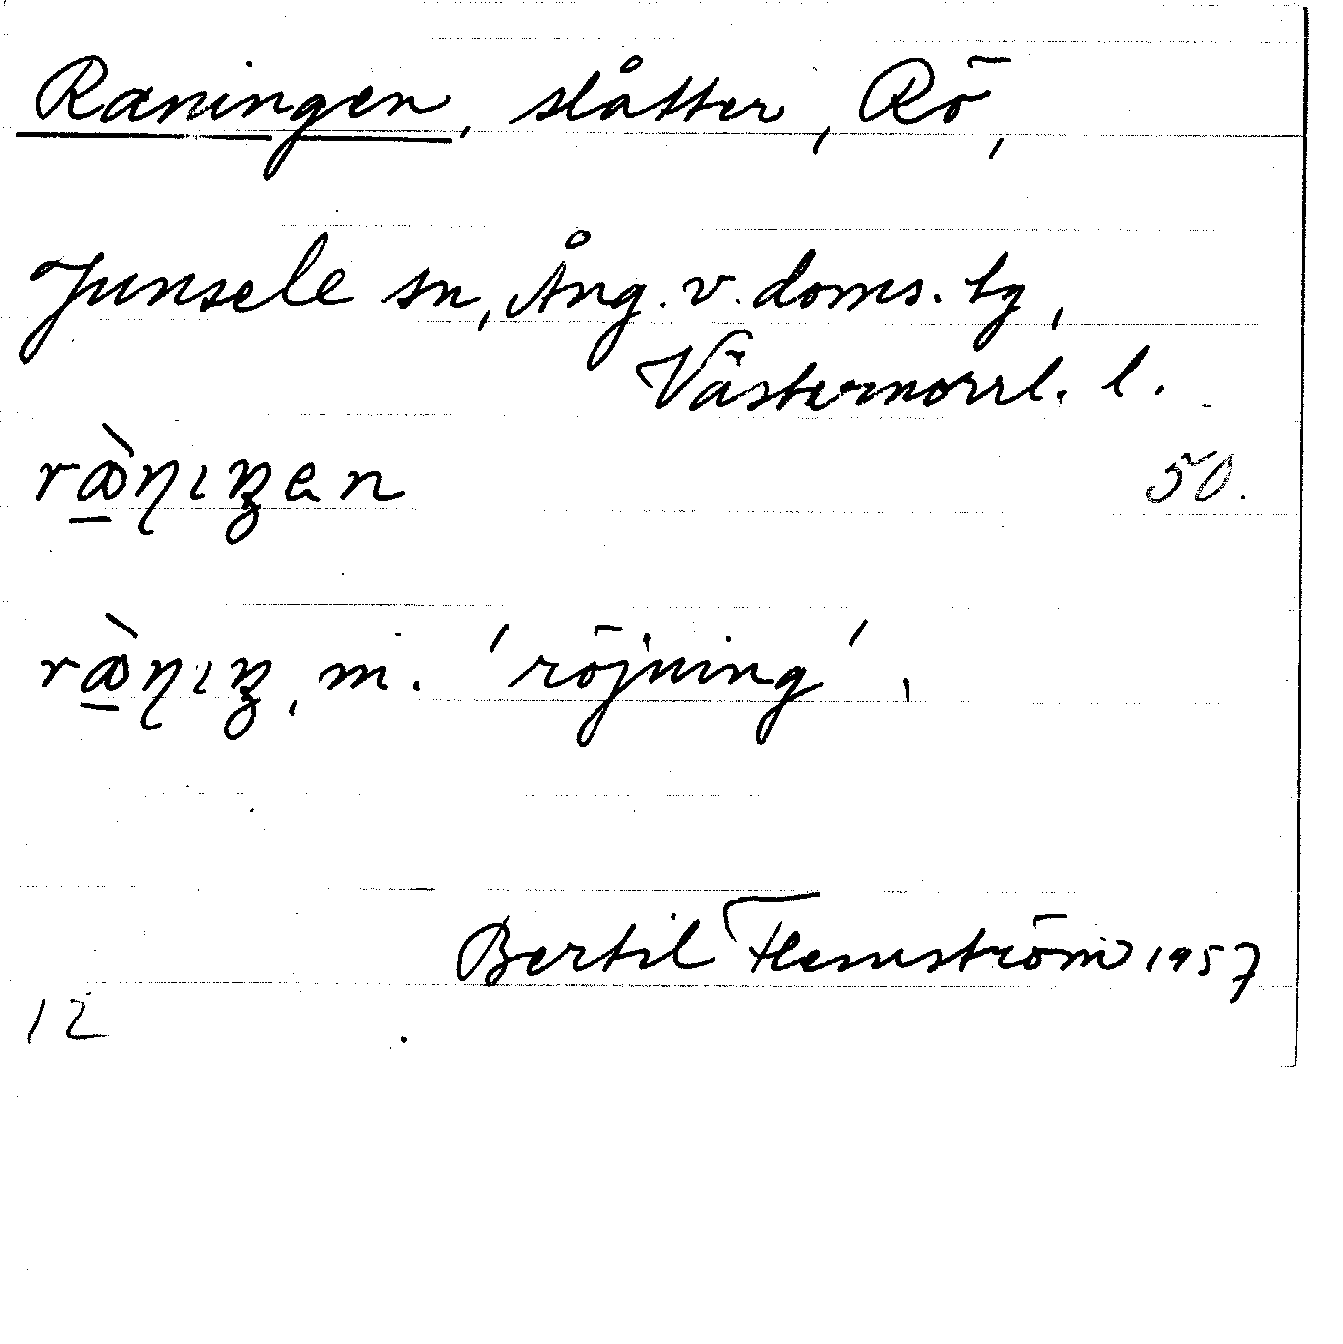 Raningen, slåtter, Rö,
Junsele sn, Ång. v. doms. tg,
Västernorrl. l.
50.
m. 'röjning'.
Bertil Flemström 1957
12